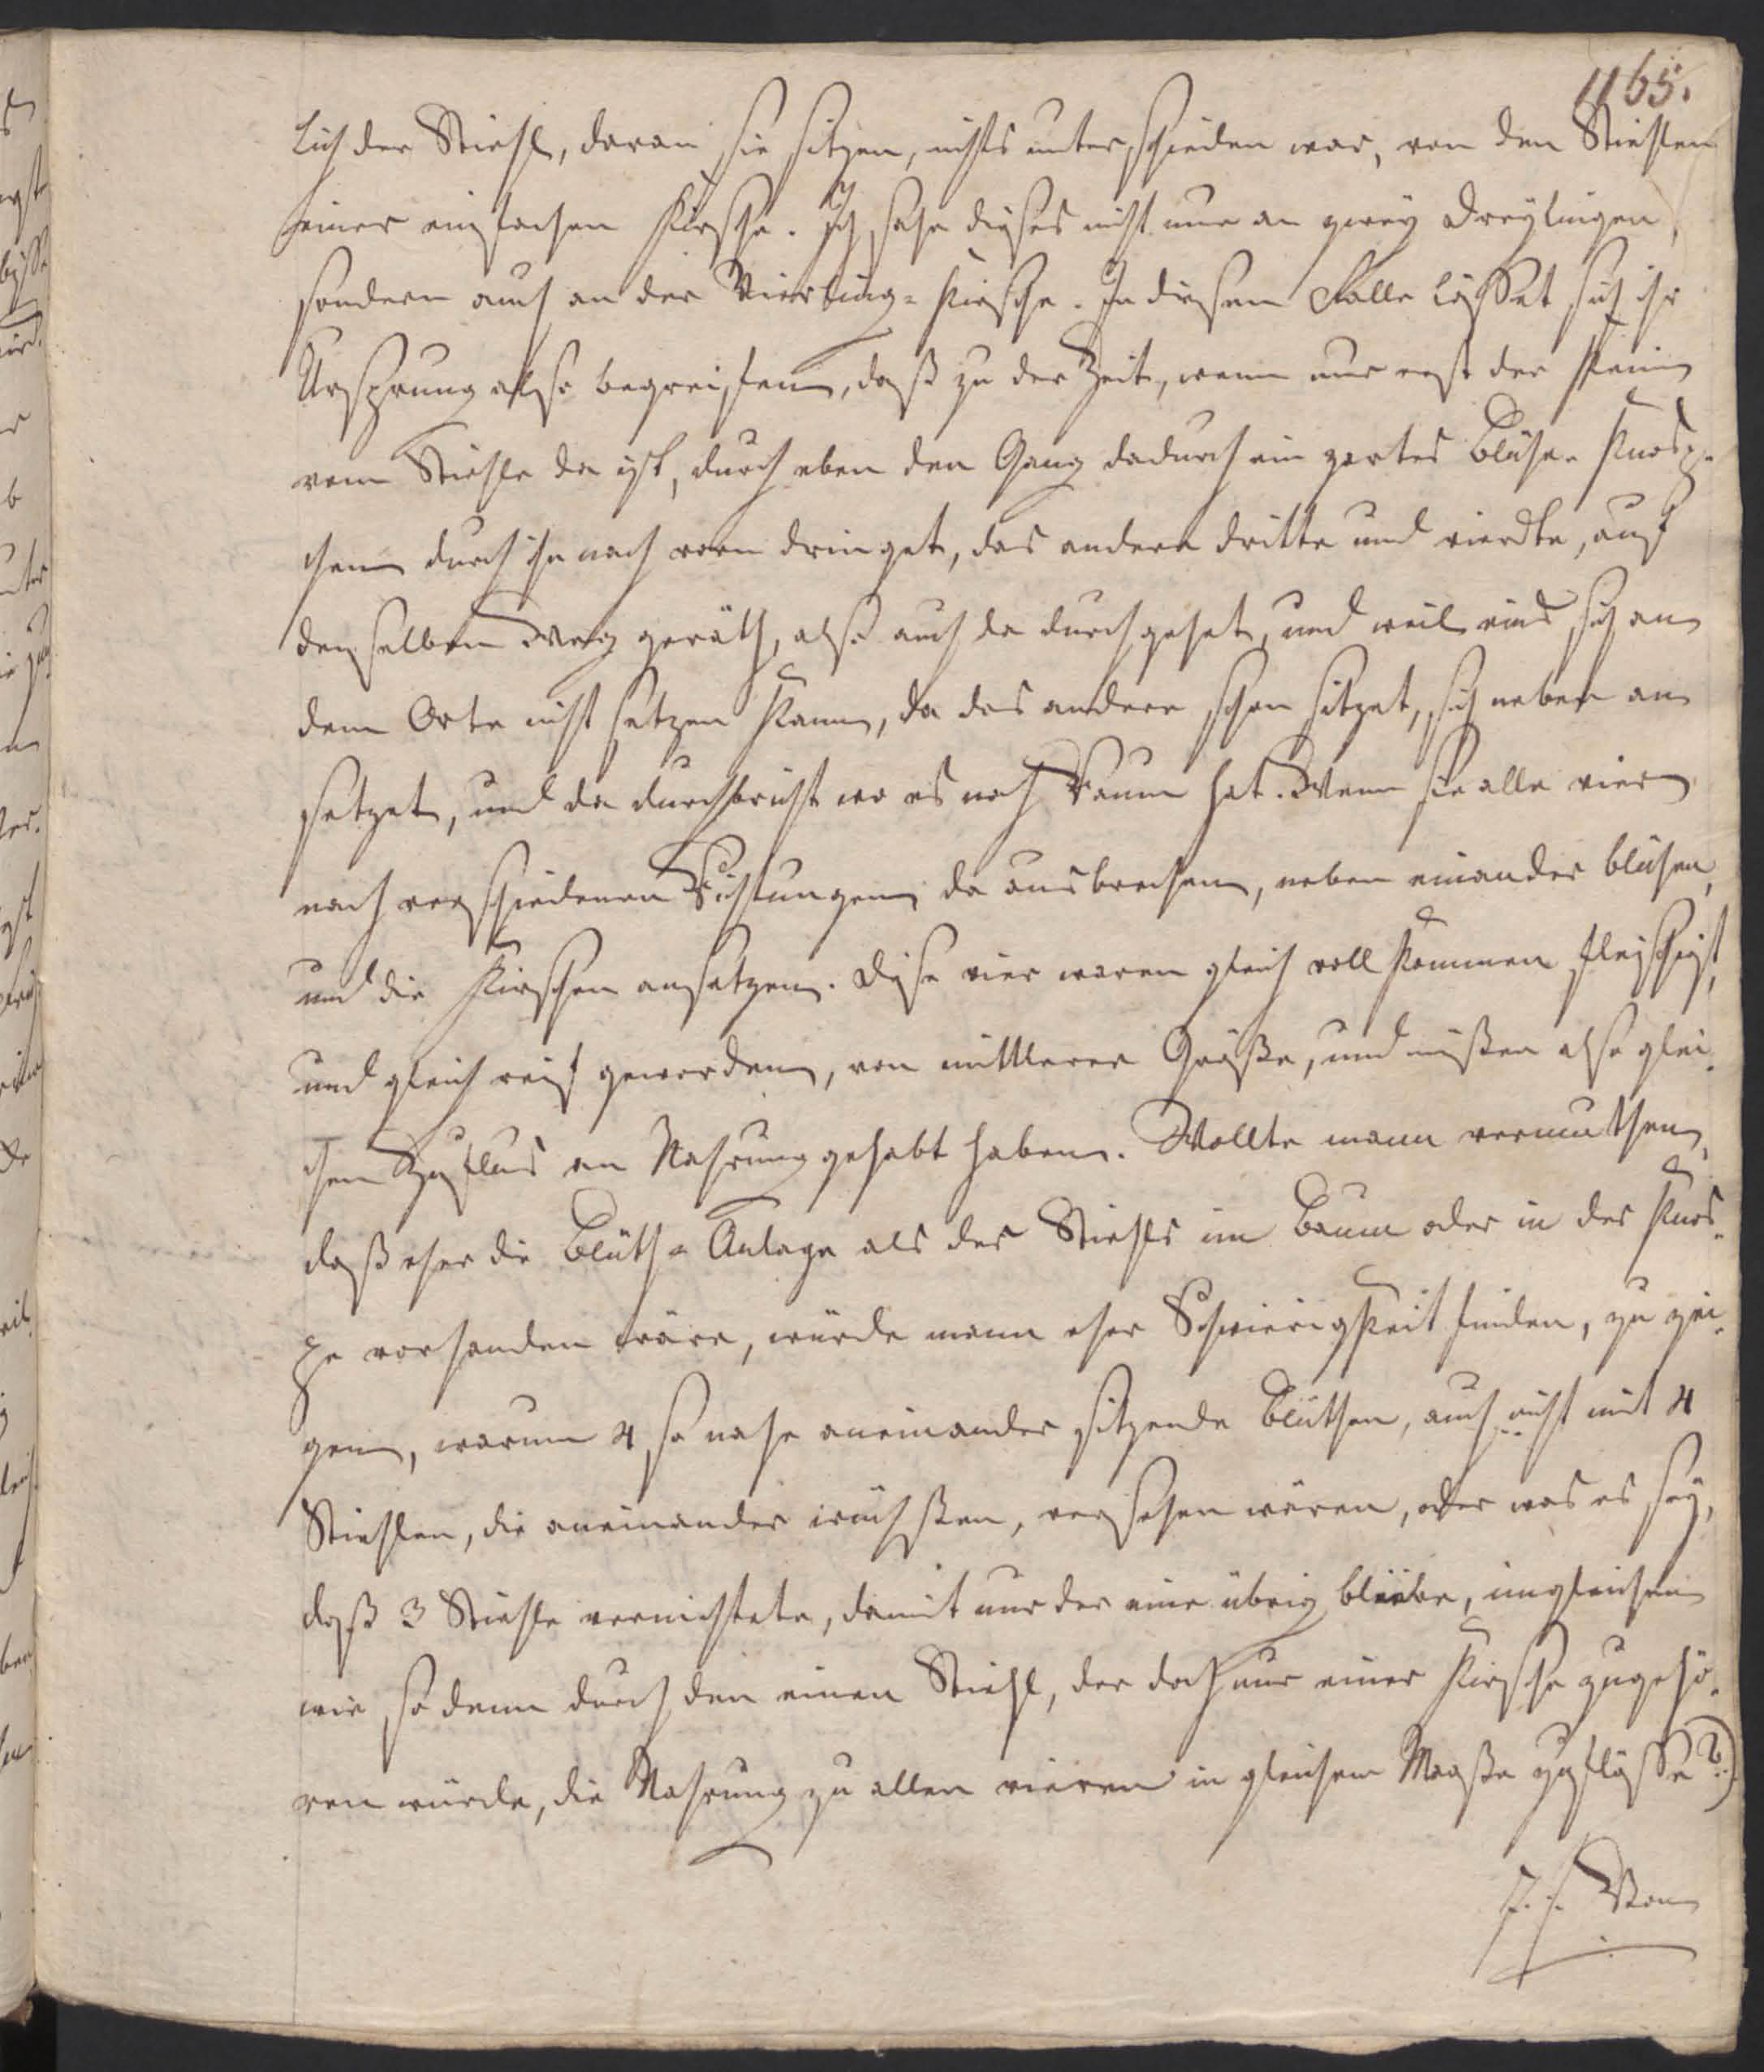 1165.
lich der Stiehl, daran sie sitzen, nichts unterschieden war, von den Stiehlen
einer einfachen Kirsche. Ich sahe dieses nicht nur an zwey Dreylingen,
sondern auch an der Vierling-Kirsche. In diesem Falle lässet sich ihr
Ursprung also begreiffen, daß zu der Zeit, wenn nur erst der Keim
vom Stiehle da ist, durch eben den Gang dadurch ein zartes Blühe-Knösp-
chen durch ihn nach vorn dringet, das andere dritte und vierdte, auf
denselben Weg geräth, also auch da durchgehet, und weil eins sich an
dem Orte nicht setzen kann, da das andere schon sitzet, sich neben an
setzet, und da durchbricht wo es noch Raum hat. Wenn sie alle vier
nach verschiedenen Richtungen da ausbrechen, neben einander blühen,
und die Kirschen ansetzen. Diese vier waren gleich vollkommen fleischigt,
und gleich reif geworden, von mittlerer Größe, und müßen also glei-
chen Zuflus an Nahrung gehabt haben. Wollte mann vermuthen,
daß eher die Blüth-Anlage als des Stiehls im Baum oder in der Knos-
pe vorhanden wäre, würde mann eher Schwierigkeit finden, zu zei-
gen, warum 4 so nahe aneinander sitzende Blüthen, auch nicht mit 4
Stiehlen, die aneinander wüchsßen, versehen wären, oder was es sey,
daß 3 Stiehle vernichtete, damit nur der eine übrig bliebe, ingleichen
wie so denn durch den einen Stiehl, der doch nur einer Kirsche zugehö-
ren würde, die Nahrung zu allen vieren in gleichem Maaße zuflösse?)